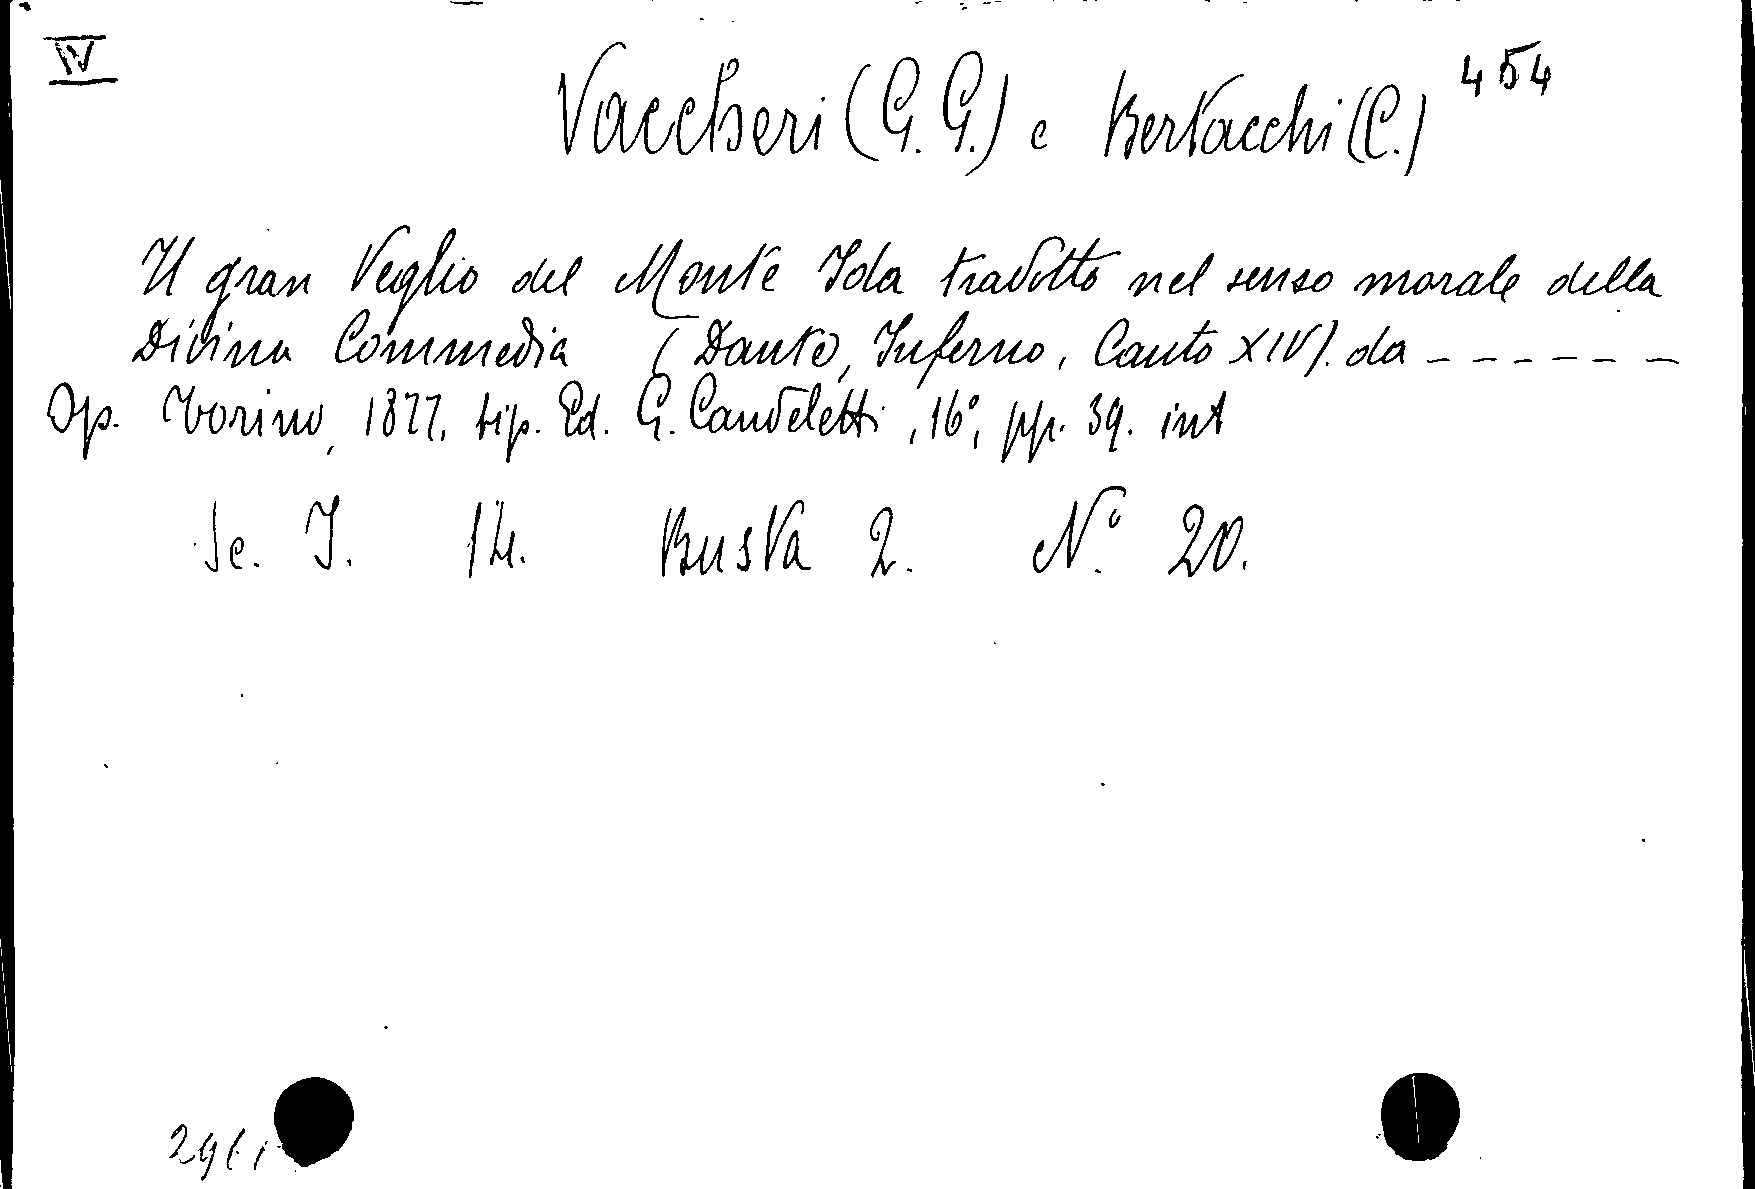 IV
454
Vaccheri (G. G.) e Bertacchi (C.)
Il gran Veglio del Monte Ida tradotto nel senso morale della
Divina Commedia (Dante, Inferno, Canto XIV). da - - - - - -
Op. Torino, 1877, tip. Ed. G. Candeletti, 16°, pp. 39. int
Sc. I. 14. Busta 2. N.° 20.